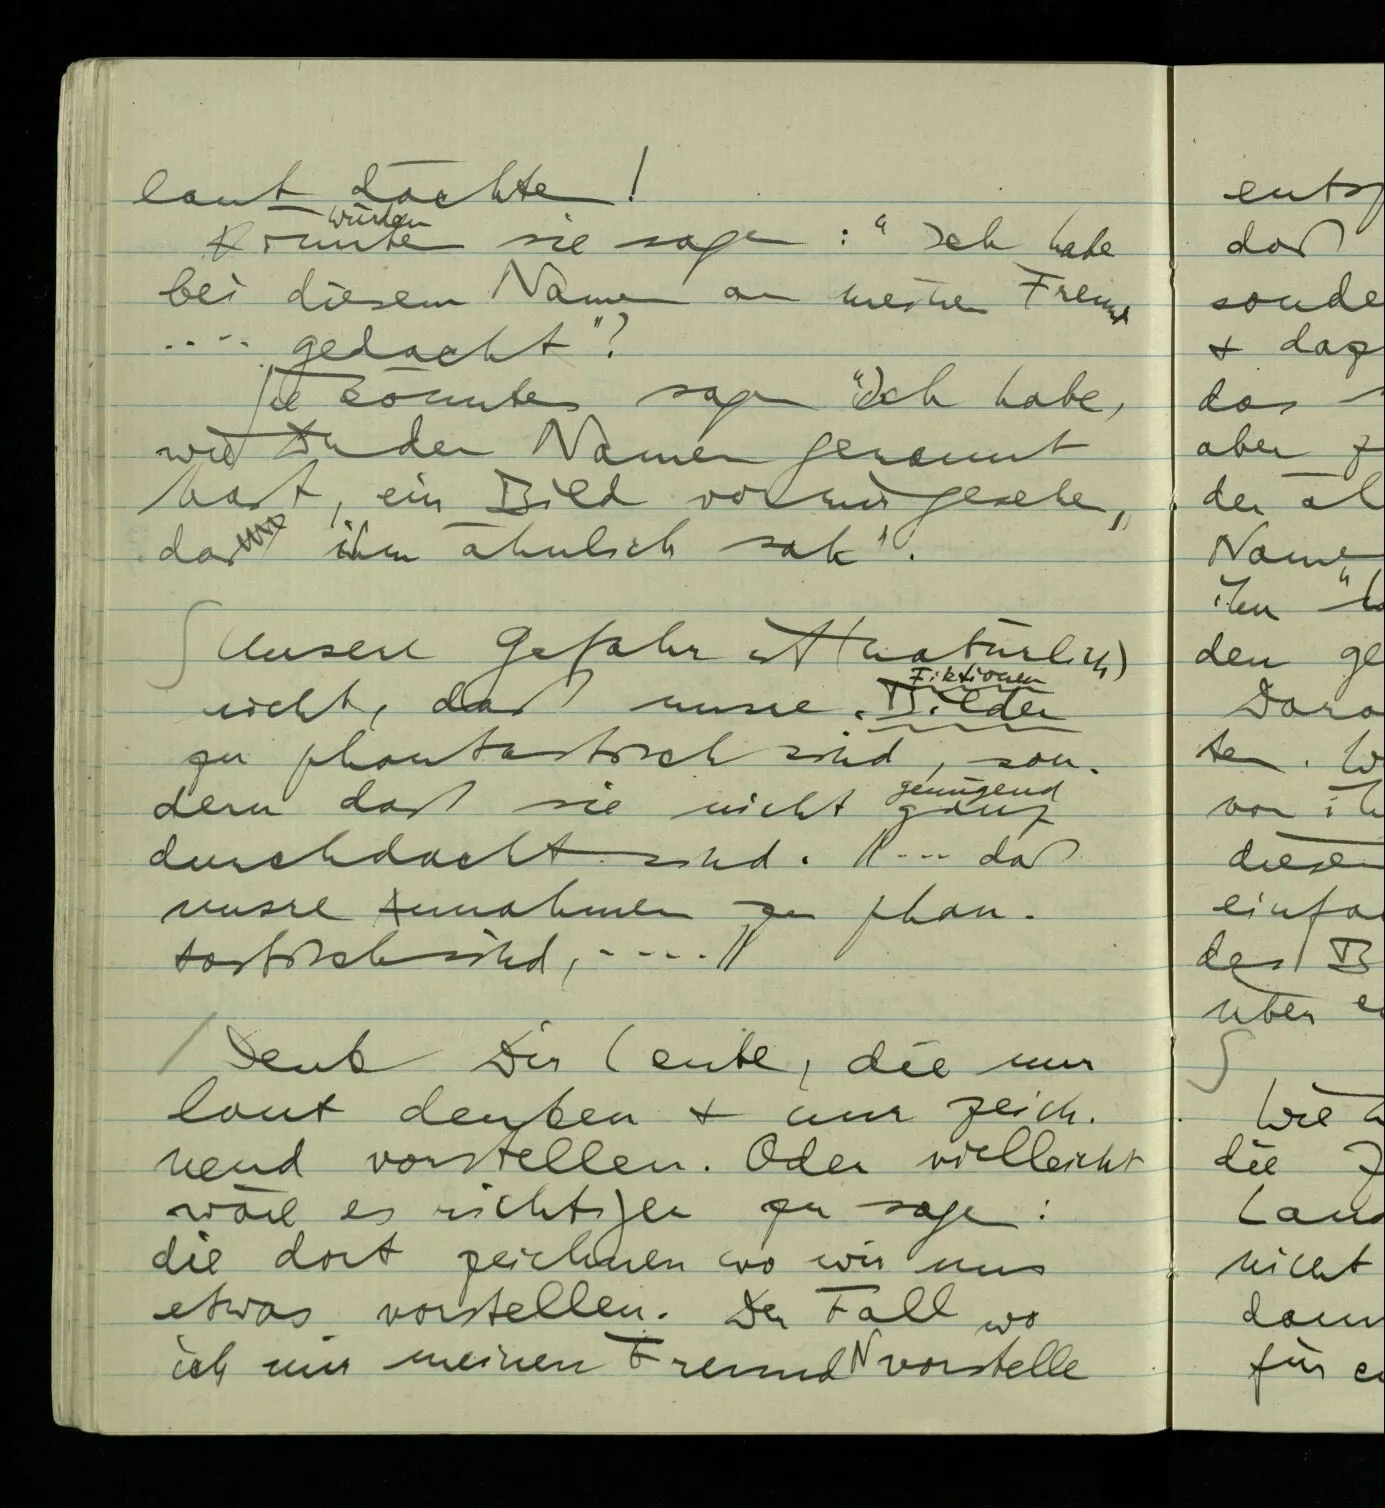 laut dächte!
würden
Könnten sie sagen: "Ich habe
bei diesem Namen an meinen Freund
.... gedacht"?
Sie könnten sagen "Ich habe,
wie Du den Namen genannt
hast, ein Bild vor mir gesehen,
das ihm ähnlich sah".
Unsere Gefahr ist (natürlich)
Fiktionen
nicht, daß unsre Bilder
zu phantastisch sind, son-
genügend
dern daß sie nicht ganz
durchdacht sind. //--- daß
unsre Annahmen zu phan-
tastisch sind, ----//
Denk Dir Leute, die nur
laut denken & nur zeich-
nend vorstellen. Oder vielleicht
wäre es richtiger zu sagen:
die dort zeichnen wo wir uns
etwas vorstellen. Der Fall wo
ich mir meinen Freund N vorstelle
daß
sonde
das
aber
Name
den ge
ten. W
diesen
einfa
des B
über
Wie
die
nicht
für